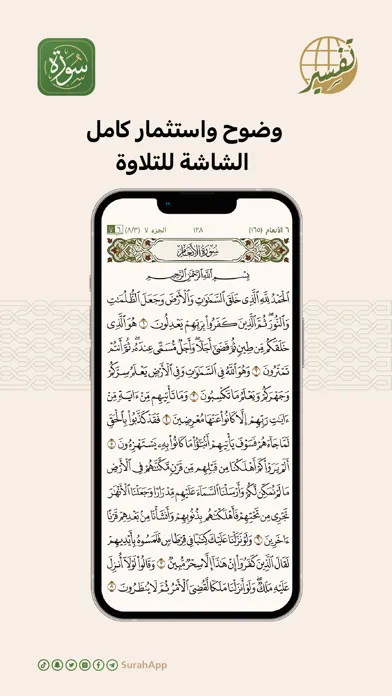 سورة
تفسير
وضوح واستثمار كامل
الشاشة للتلاوة
٦ الأنعام (١٦٥)
١٢٨
الجزء ٧ (٨/٣)
سورة الأنعام
بِسْمِ اللَّهِ الرَّحْمَٰنِ الرَّحِيمِ
الْحَمْدُ لِلَّهِ الَّذِي خَلَقَ السَّمَٰوَٰتِ وَالْأَرْضَ وَجَعَلَ الظُّلُمَٰتِ
وَالنُّورَ ثُمَّ الَّذِينَ كَفَرُوا بِرَبِّهِمْ يَعْدِلُونَ ١ هُوَ الَّذِي
خَلَقَكُم مِّن طِينٍ ثُمَّ قَضَىٰ أَجَلًا وَأَجَلٌ مُّسَمًّى عِندَهُ ثُمَّ أَنتُمْ
تَمْتَرُونَ ٢ وَهُوَ اللَّهُ فِي السَّمَٰوَٰتِ وَفِي الْأَرْضِ يَعْلَمُ سِرَّكُمْ
وَجَهْرَكُمْ وَيَعْلَمُ مَا تَكْسِبُونَ ٣ وَمَا تَأْتِيهِم مِّنْ ءَايَةٍ مِّنْ
ءَايَٰتِ رَبِّهِمْ إِلَّا كَانُوا عَنْهَا مُعْرِضِينَ ٤ فَقَدْ كَذَّبُوا بِالْحَقِّ
لَمَّا جَاءَهُمْ فَسَوْفَ يَأْتِيهِمْ أَنۢبَٰٓؤُا مَا كَانُوا بِهِ يَسْتَهْزِءُونَ ٥
أَلَمْ يَرَوْا كَمْ أَهْلَكْنَا مِن قَبْلِهِم مِّن قَرْنٍ مَّكَّنَّٰهُمْ فِي الْأَرْضِ
مَا لَمْ نُمَكِّن لَّكُمْ وَأَرْسَلْنَا السَّمَاءَ عَلَيْهِم مِّدْرَارًا وَجَعَلْنَا الْأَنْهَٰرَ
تَجْرِي مِن تَحْتِهِمْ فَأَهْلَكْنَٰهُم بِذُنُوبِهِمْ وَأَنشَأْنَا مِنۢ بَعْدِهِمْ قَرْنًا
ءَاخَرِينَ ٦ وَلَوْ نَزَّلْنَا عَلَيْكَ كِتَٰبًا فِي قِرْطَاسٍ فَلَمَسُوهُ بِأَيْدِيهِمْ
لَقَالَ الَّذِينَ كَفَرُوا إِنْ هَٰذَا إِلَّا سِحْرٌ مُّبِينٌ ٧ وَقَالُوا لَوْلَا أُنزِلَ
عَلَيْهِ مَلَكٌ وَلَوْ أَنزَلْنَا مَلَكًا لَّقُضِيَ الْأَمْرُ ثُمَّ لَا يُنظَرُونَ ٨
SurahApp